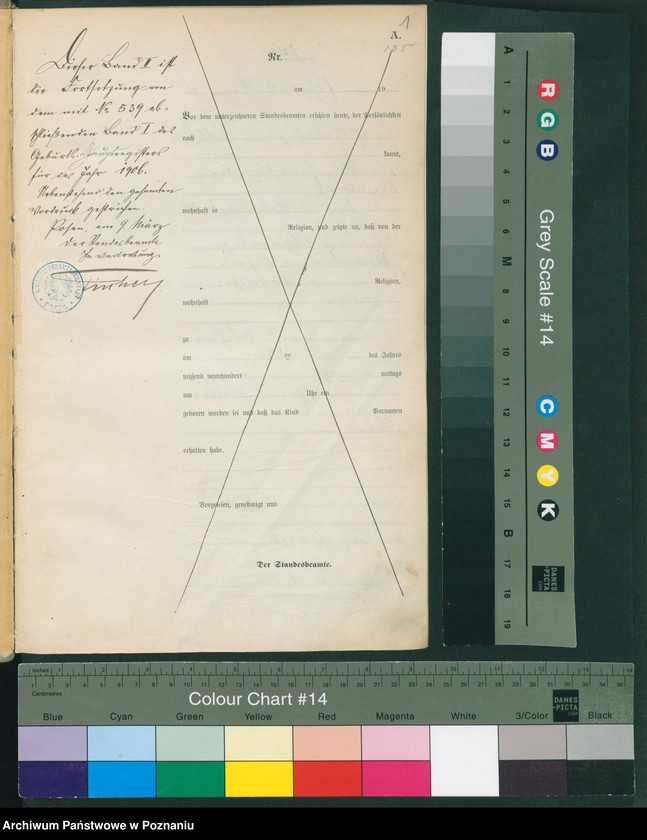 1
A.
Nr.
Dieser Band II ist
die Fortsetzung von
dem mit No 539 ab-
schließenden Band I des
Geburts-Hauptregisters
für das Jahr 1906.
Nebenstehend den gesamten
Vordruck gestrichen.
Posen, am 9 März
Der Standesbeamte
In Vertretung.
am 19
Vor dem unterzeichneten Standesbeamten erschien heute, der Persönlichkeit
nach
kannt,
wohnhaft in
Religion, und zeigte an, daß von der
Religion,
wohnhaft
zu
am des Jahres
tausend neunhundert mittags
um Uhr ein
geboren worden sei und daß das Kind Vornamen
erhalten habe.
Vorgelesen, genehmigt und
Der Standesbeamte.
A
1
2
3
4
5
6
M
8
9
10
11
12
13
14
15
B
17
18
19
R
G
B
Grey Scale #14
C
M
Y
K
DANES
-PICTA
.COM
Inches
Centimetres
Colour Chart #14
DANES
-PICTA
.COM
Blue Cyan Green Yellow Red Magenta White 3/Color Black
Archiwum Państwowe w Poznaniu